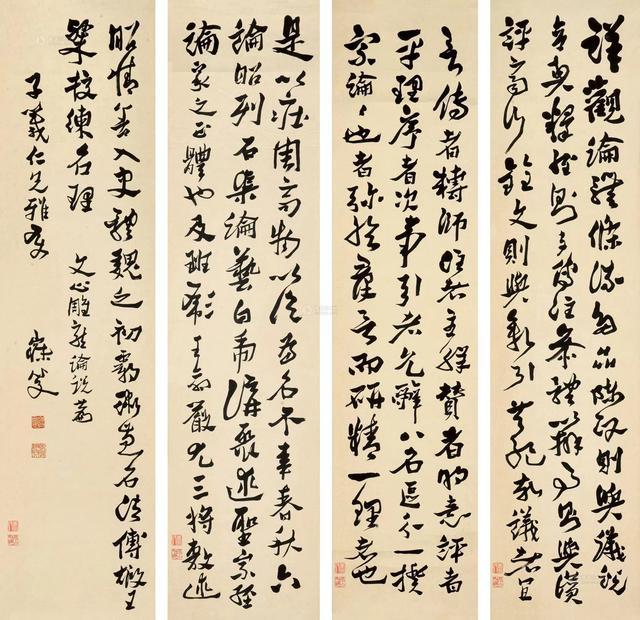 詳觀論體條流多品陳政則與議說
合契釋經則與傳注參體辨史則與讚
評齊行銓文則與敘引共紀故議者宜
言傳者轉師注者主解贊者明意評者
平理序者次事引者辭八名區分一揆
宗論々也者弥綸羣言而研精一理者也
是以莊周齊物以論為名不韋春秋六
論昭列石渠論藝白虎講聚述聖宗經
論家之正體也及班彪王命嚴尤三將敷述
昭情善入史體魏之初霸術兼名法傅嘏王
粲校練名理 文心雕龍論說篇
子羲仁兄雅屬 寐叟